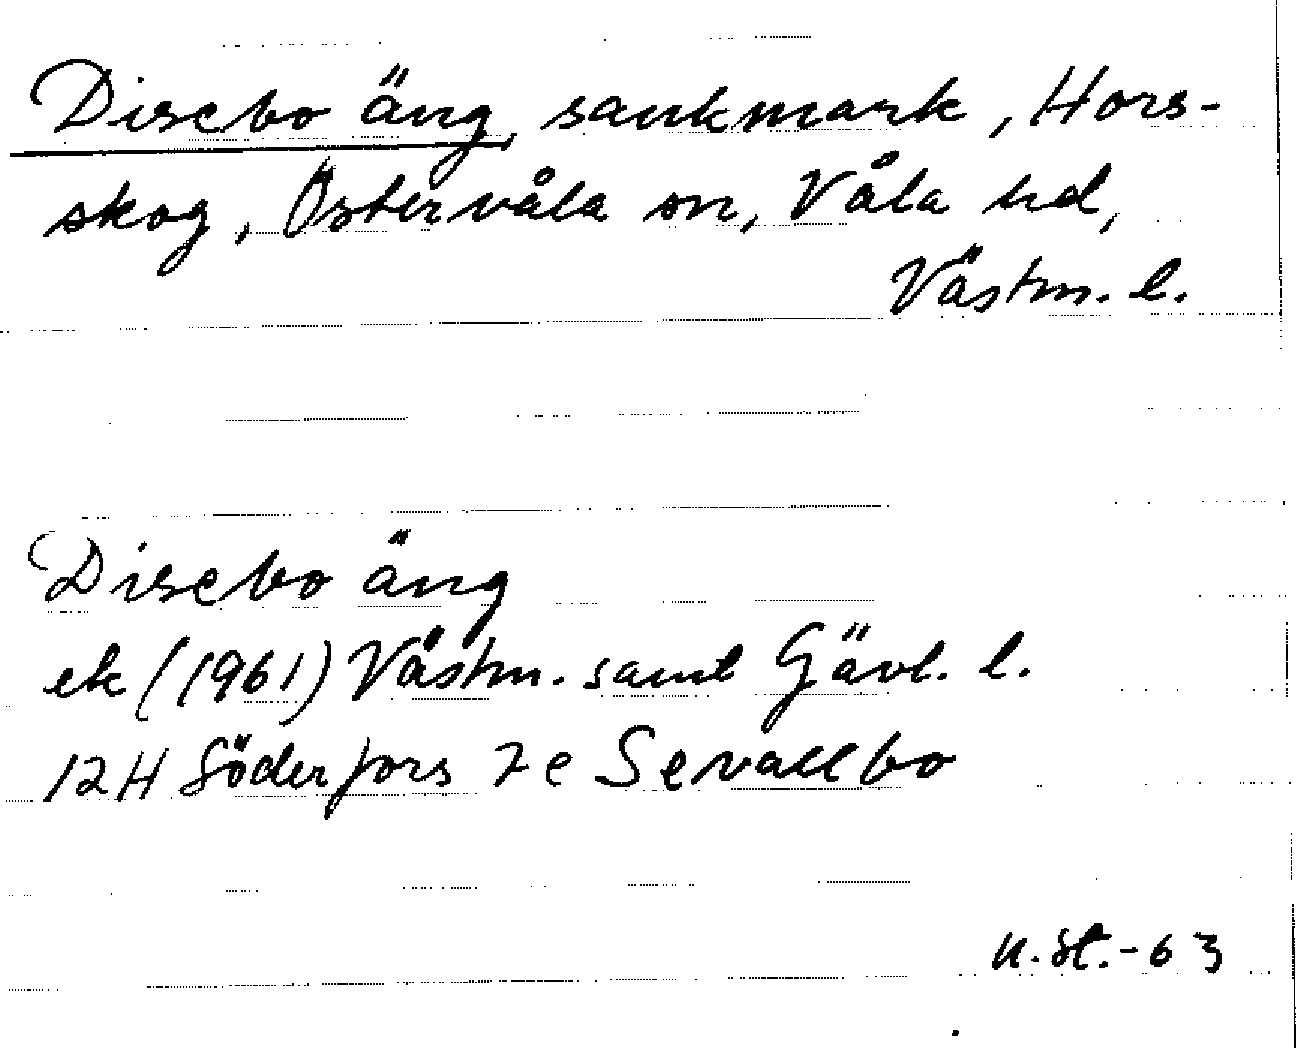 Disebo äng, sankmark, Hors-
skog, Östervåla sn, Våla hd,
Västm. l.
Disebo äng
ek (1961) Västm. samt Gävl. l.
12H Söderfors 7e Sevallbo
U. St. -63